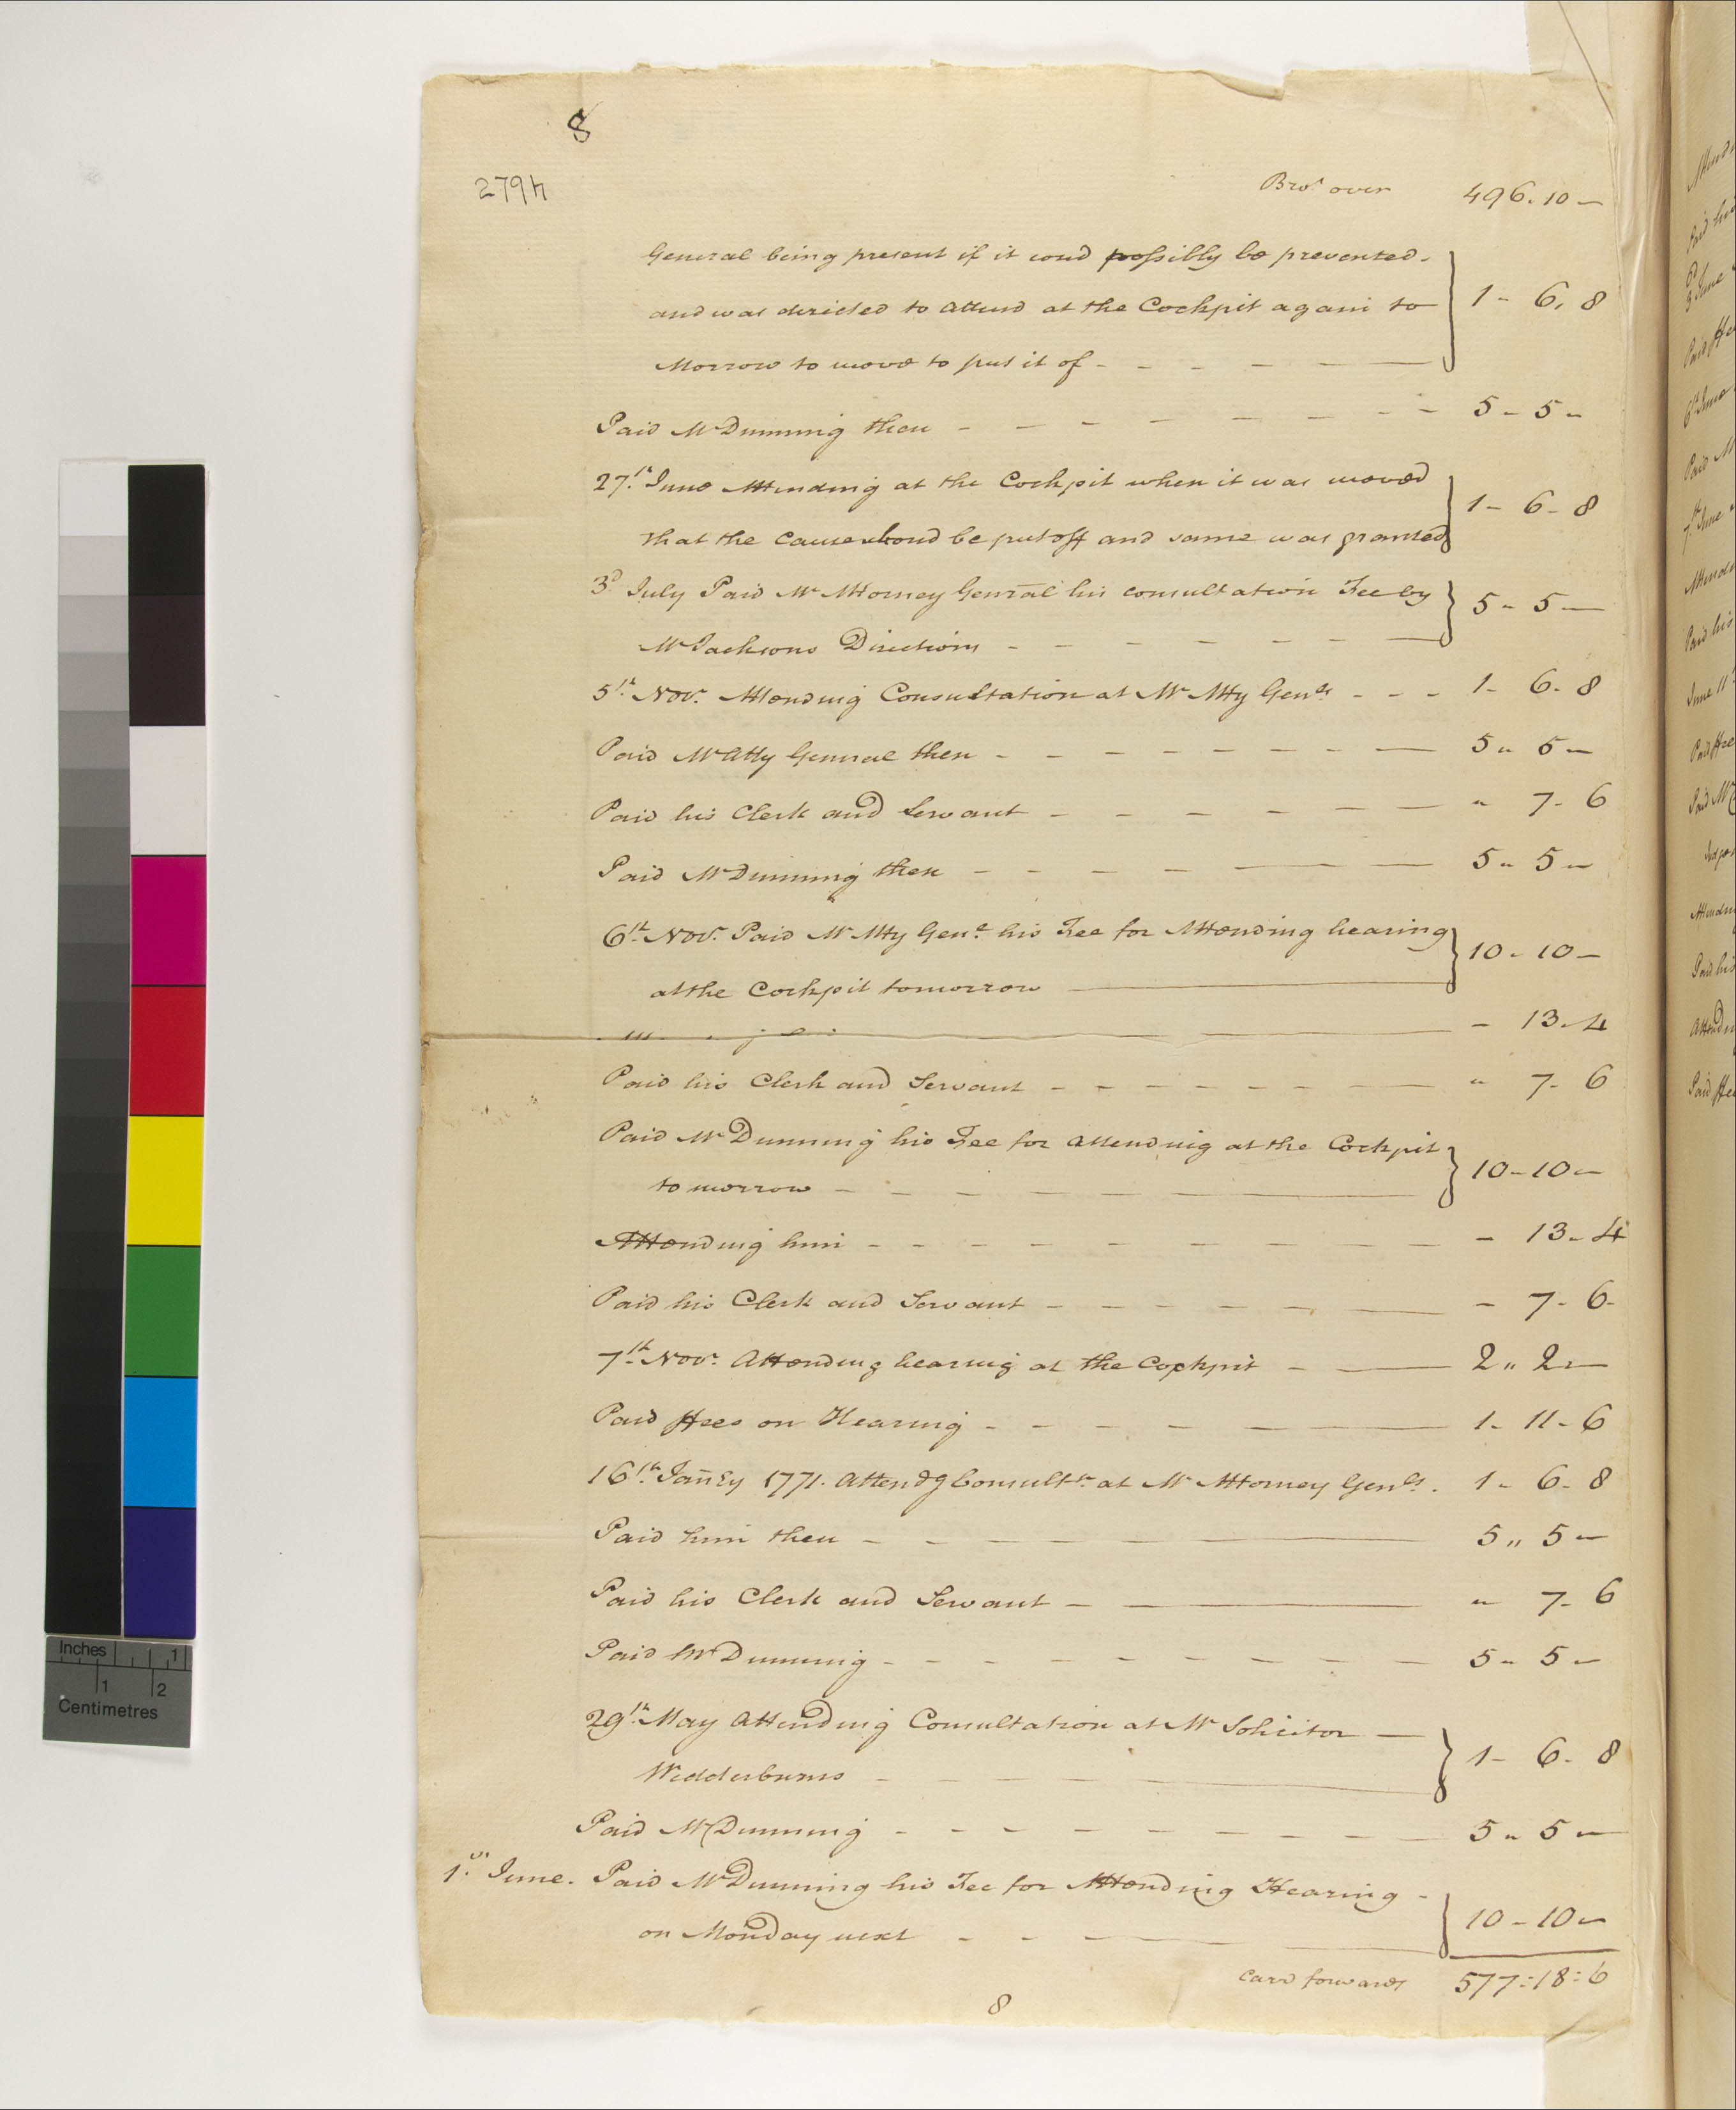 8
2794
Bro.t over 496. 10 —
General being present if it coud possibly be prevented.
and was directed to attend at the Cockpit again to 1 - 6. 8
Morrow to move to put it of - - - - —
Paid Mr Dunning then - - - - - - - - 5 - 5 -
27.th June Attending at the Cockpit when it was moved
that the Cause shoud be put off and same was granted 1 - 6 - 8
3d July Paid Mr Attorney Genral his consultation Fee by
Mr Jacksons Directions - - - - - - — 5 " 5 —
5.th Nov.r Attending Consultation at Mr Atty Gen.ls - - - 1 - 6 - 8
Paid Mr Atty General then - - - - - - - — 5 " 5 —
Paid his Clerk and Servant - - - - - — " 7 - 6
Paid Mr Dunning then - - - - — — 5 " 5 —
6.th Nov.r Paid Mr Atty Gen.l his Fee for Attending hearing
at the Cockpit tomorrow — 10 - 10 —
— 13 - 4
Paid his Clerk and Servant - - - - - - — " 7 - 6
Paid Mr Dunning his Fee for attending at the Cockpit
to morrow - - - - - - — 10 - 10 —
Attending him - - - - - - - - - - — - 13 - 4
Paid his Clerk and Servant - - - - - — - 7 - 6 -
7.th Nov.r Attending hearing at the Cockpit - — 2 " 2 —
Paid ffees on Hearing - - - - - — — 1 - 11 - 6
16.th Janry 1771. Attendg Consult.n at Mr Attorney Gen.ls . 1 - 6 - 8
Paid him then - - - - - - — 5 " 5 —
Paid his Clerk and Servant - — " 7 - 6
Paid Mr Dunning - - - - - - - - - — 5 " 5 —
29.th May Attending Consultation at Mr Solicitor —
Wedderburns - - - - — 1 - 6 - 8
Paid Mr Dunning - - - - - - - - - — 5 " 5 —
1.st June. Paid Mr Dunning his Fee for Attending Hearing -
on Monday next - - — — 10 - 10 —
Carrd forwards 577 : 18 : 6
8
Inches 1
1 2
Centimetres